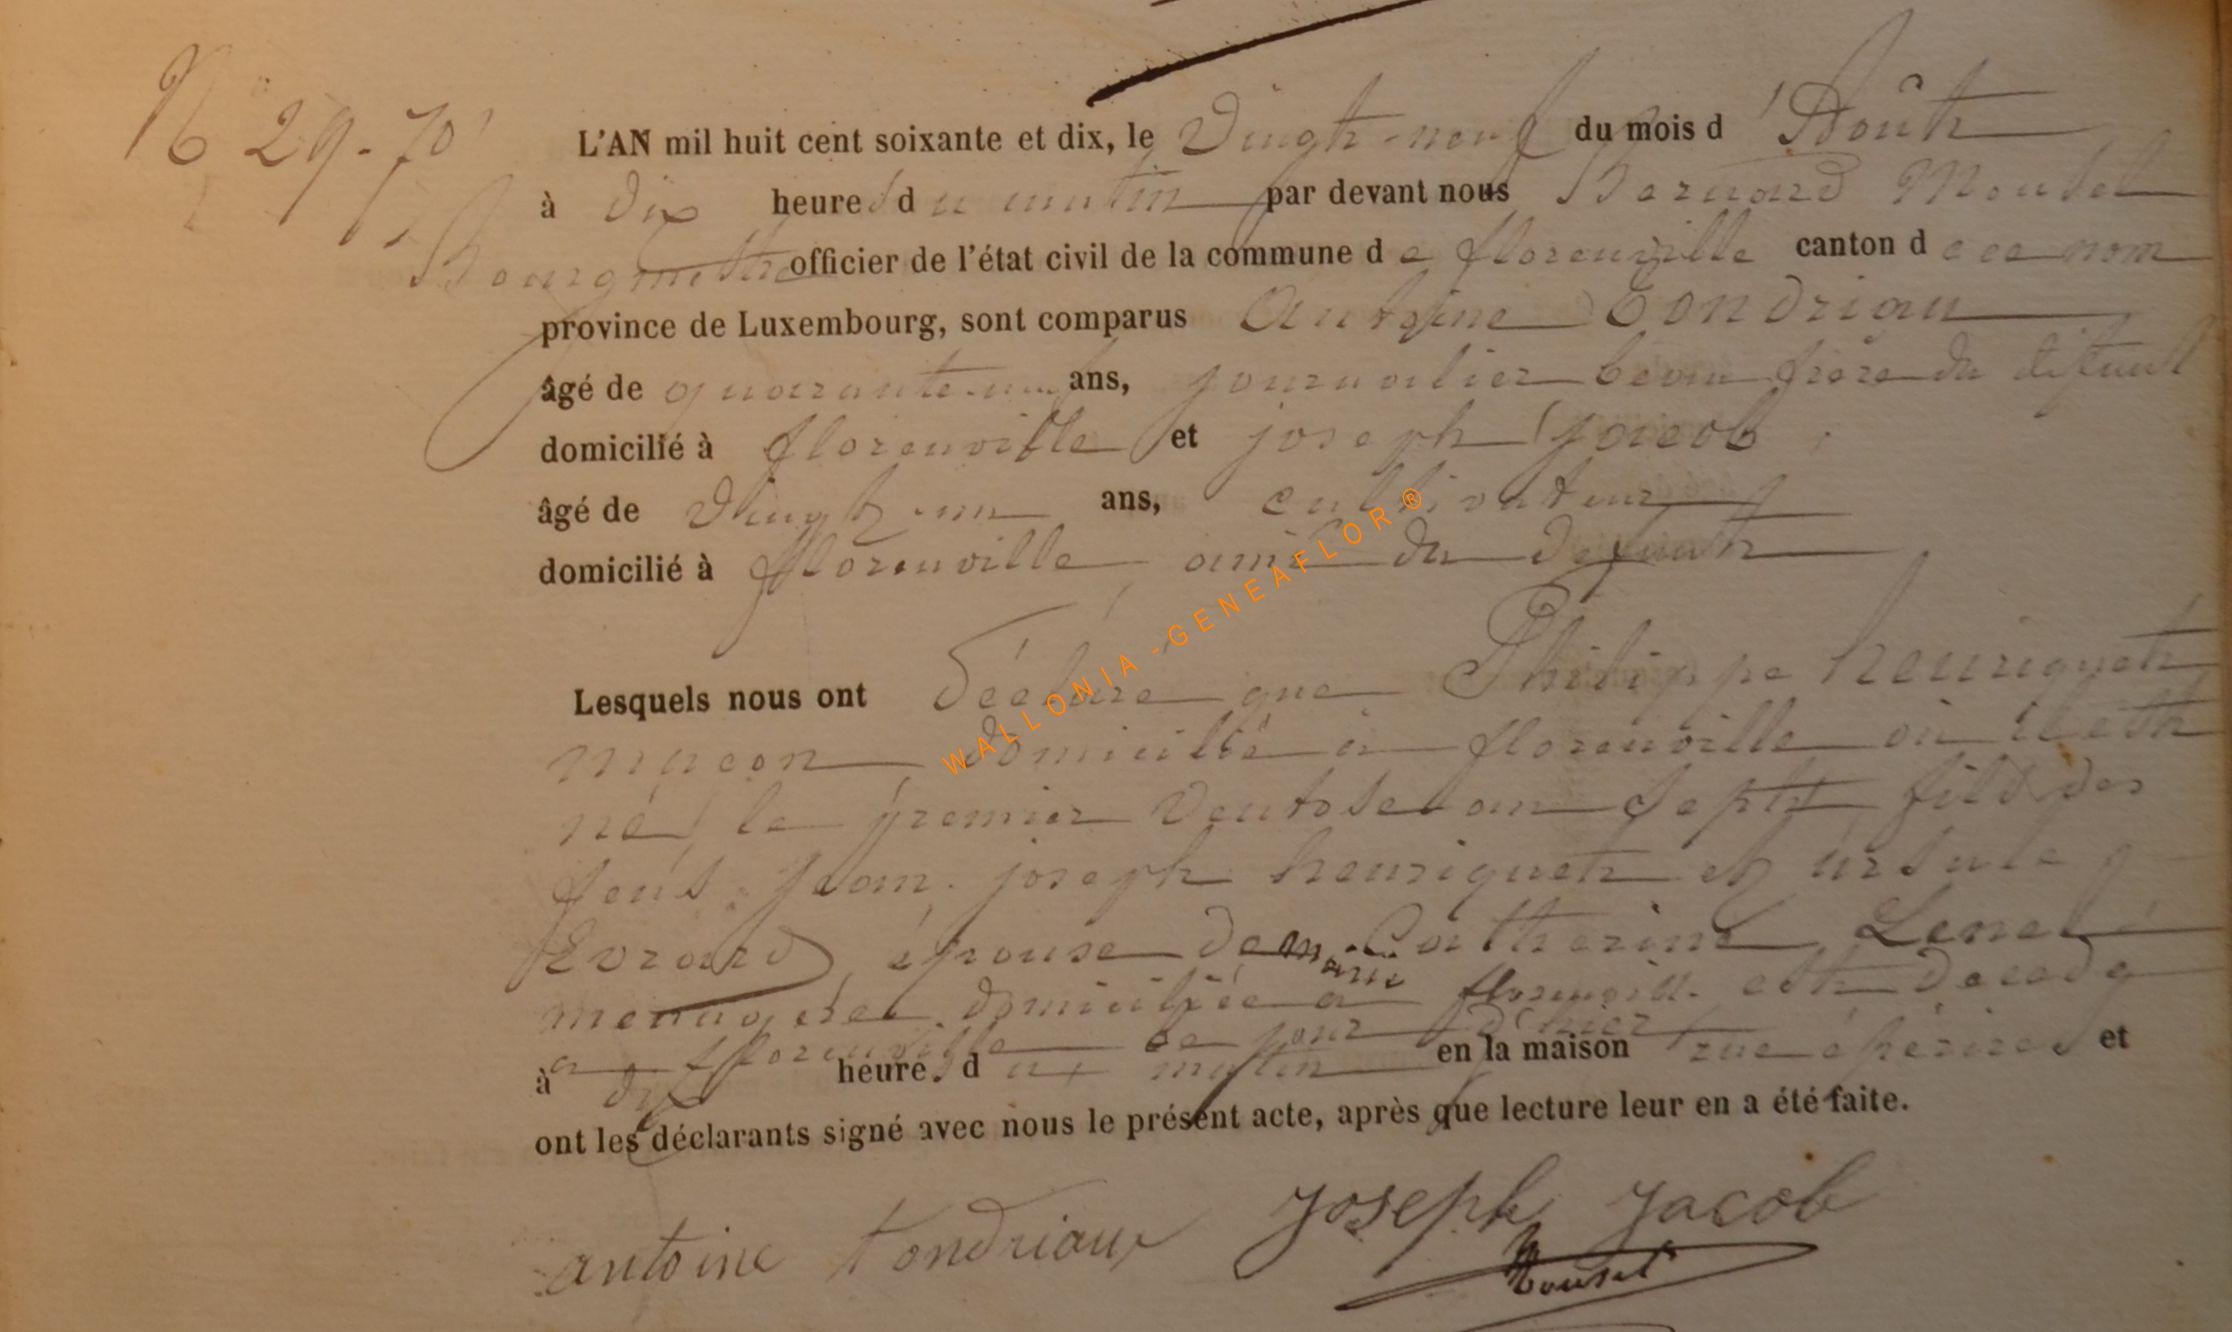 No 29-70
L'AN mil huit cent soixante et dix, le Vingt-neuf du mois d'Août
à dix heures du matin par devant nous Bernard Mousel
Bourgmestre officier de l'état civil de la commune de florenville canton de ce nom
province de Luxembourg, sont comparus Antoine Tondriau
âgé de quarante-un ans, journalier beau frère du défunt
domicilié à florenville et joseph Jacob
âgé de Vingt-un ans, cultivateur
domicilié à florenville, ami du défunt
Lesquels nous ont déclaré que Philippe henriquet
maçon domicilié à florenville où il est
né le premier Ventose an Sept fils des
feus Jean joseph henriquet et ursule
Evrard, épouse de Marie Catherine
menagère domiciliée a florenville est décédé
a florenville le jour d'hier
à dix heures du matin en la maison rue épérires et
ont les déclarants signé avec nous le présent acte, après que lecture leur en a été faite.
antoine tondriaux Joseph Jacob
Mousel
WALLONIA - GENEAFLOR ®